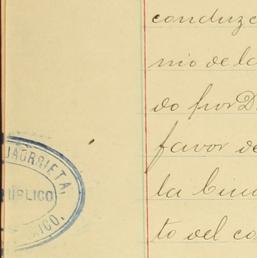 conduzc
nio de la
do por D
favor de
la ciu
to del co
JAURRIETA,
PÚBLICO
XICO.